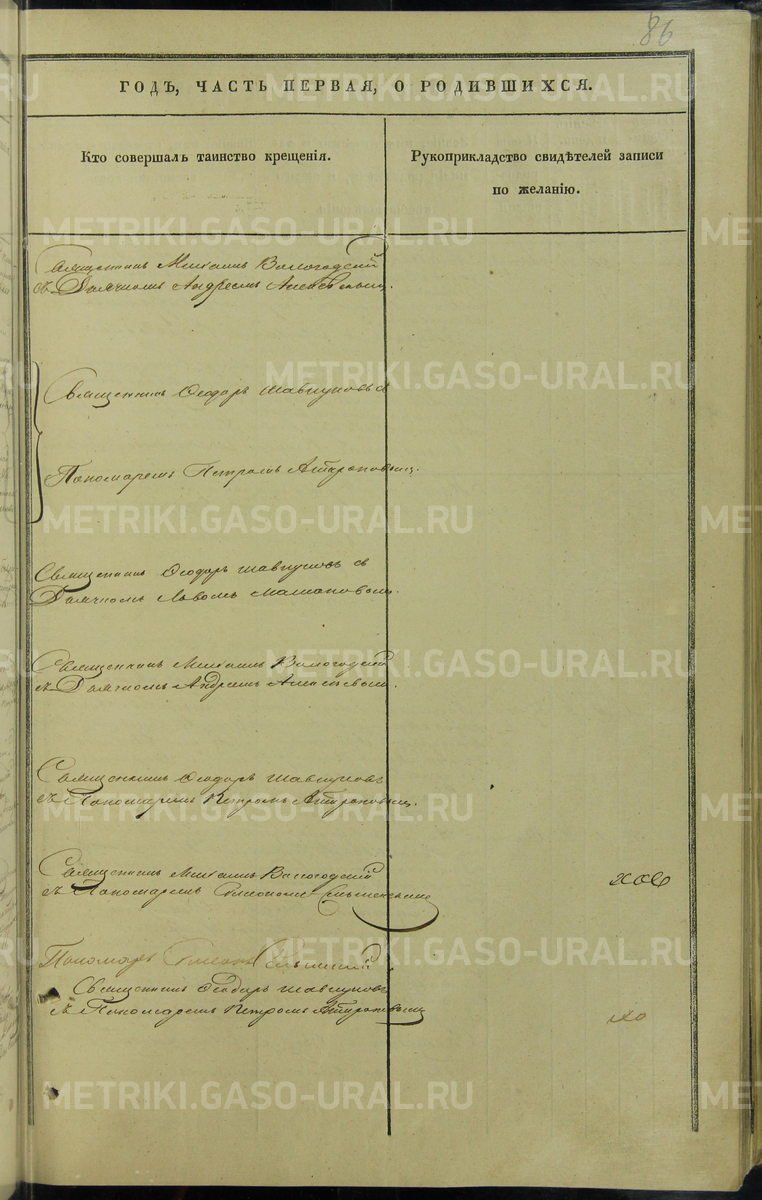 86
ГОДЪ, ЧАСТЬ ПЕРВАЯ, О РОДИВШИХСЯ.
Кто совершалъ таинство крещенія.
Рукоприкладство свидѣтелей записи
по желанію.
Священникъ Михаилъ Вологодскій
съ Дьячкомъ Андреемъ Алексѣевымъ.
Священникъ Ѳеодоръ Шавкуновъ съ
Пономаремъ Петромъ Антроповымъ.
Священникъ Ѳеодоръ Шавкуновъ съ
Дьячкомъ Львомъ
Священникъ Михаилъ Вологодскій
съ Дьячкомъ Андреемъ Алексѣевымъ.
Священникъ Ѳеодоръ Шавкуновъ
съ Пономаремъ Петромъ Антроповымъ.
Священникъ Михаилъ Вологодскій
съ Пономаремъ
Пономарь
Священникъ Ѳеодоръ Шавкуновъ
съ Пономаремъ Петромъ Антроповымъ
METRIKI.GASO-URAL.RU